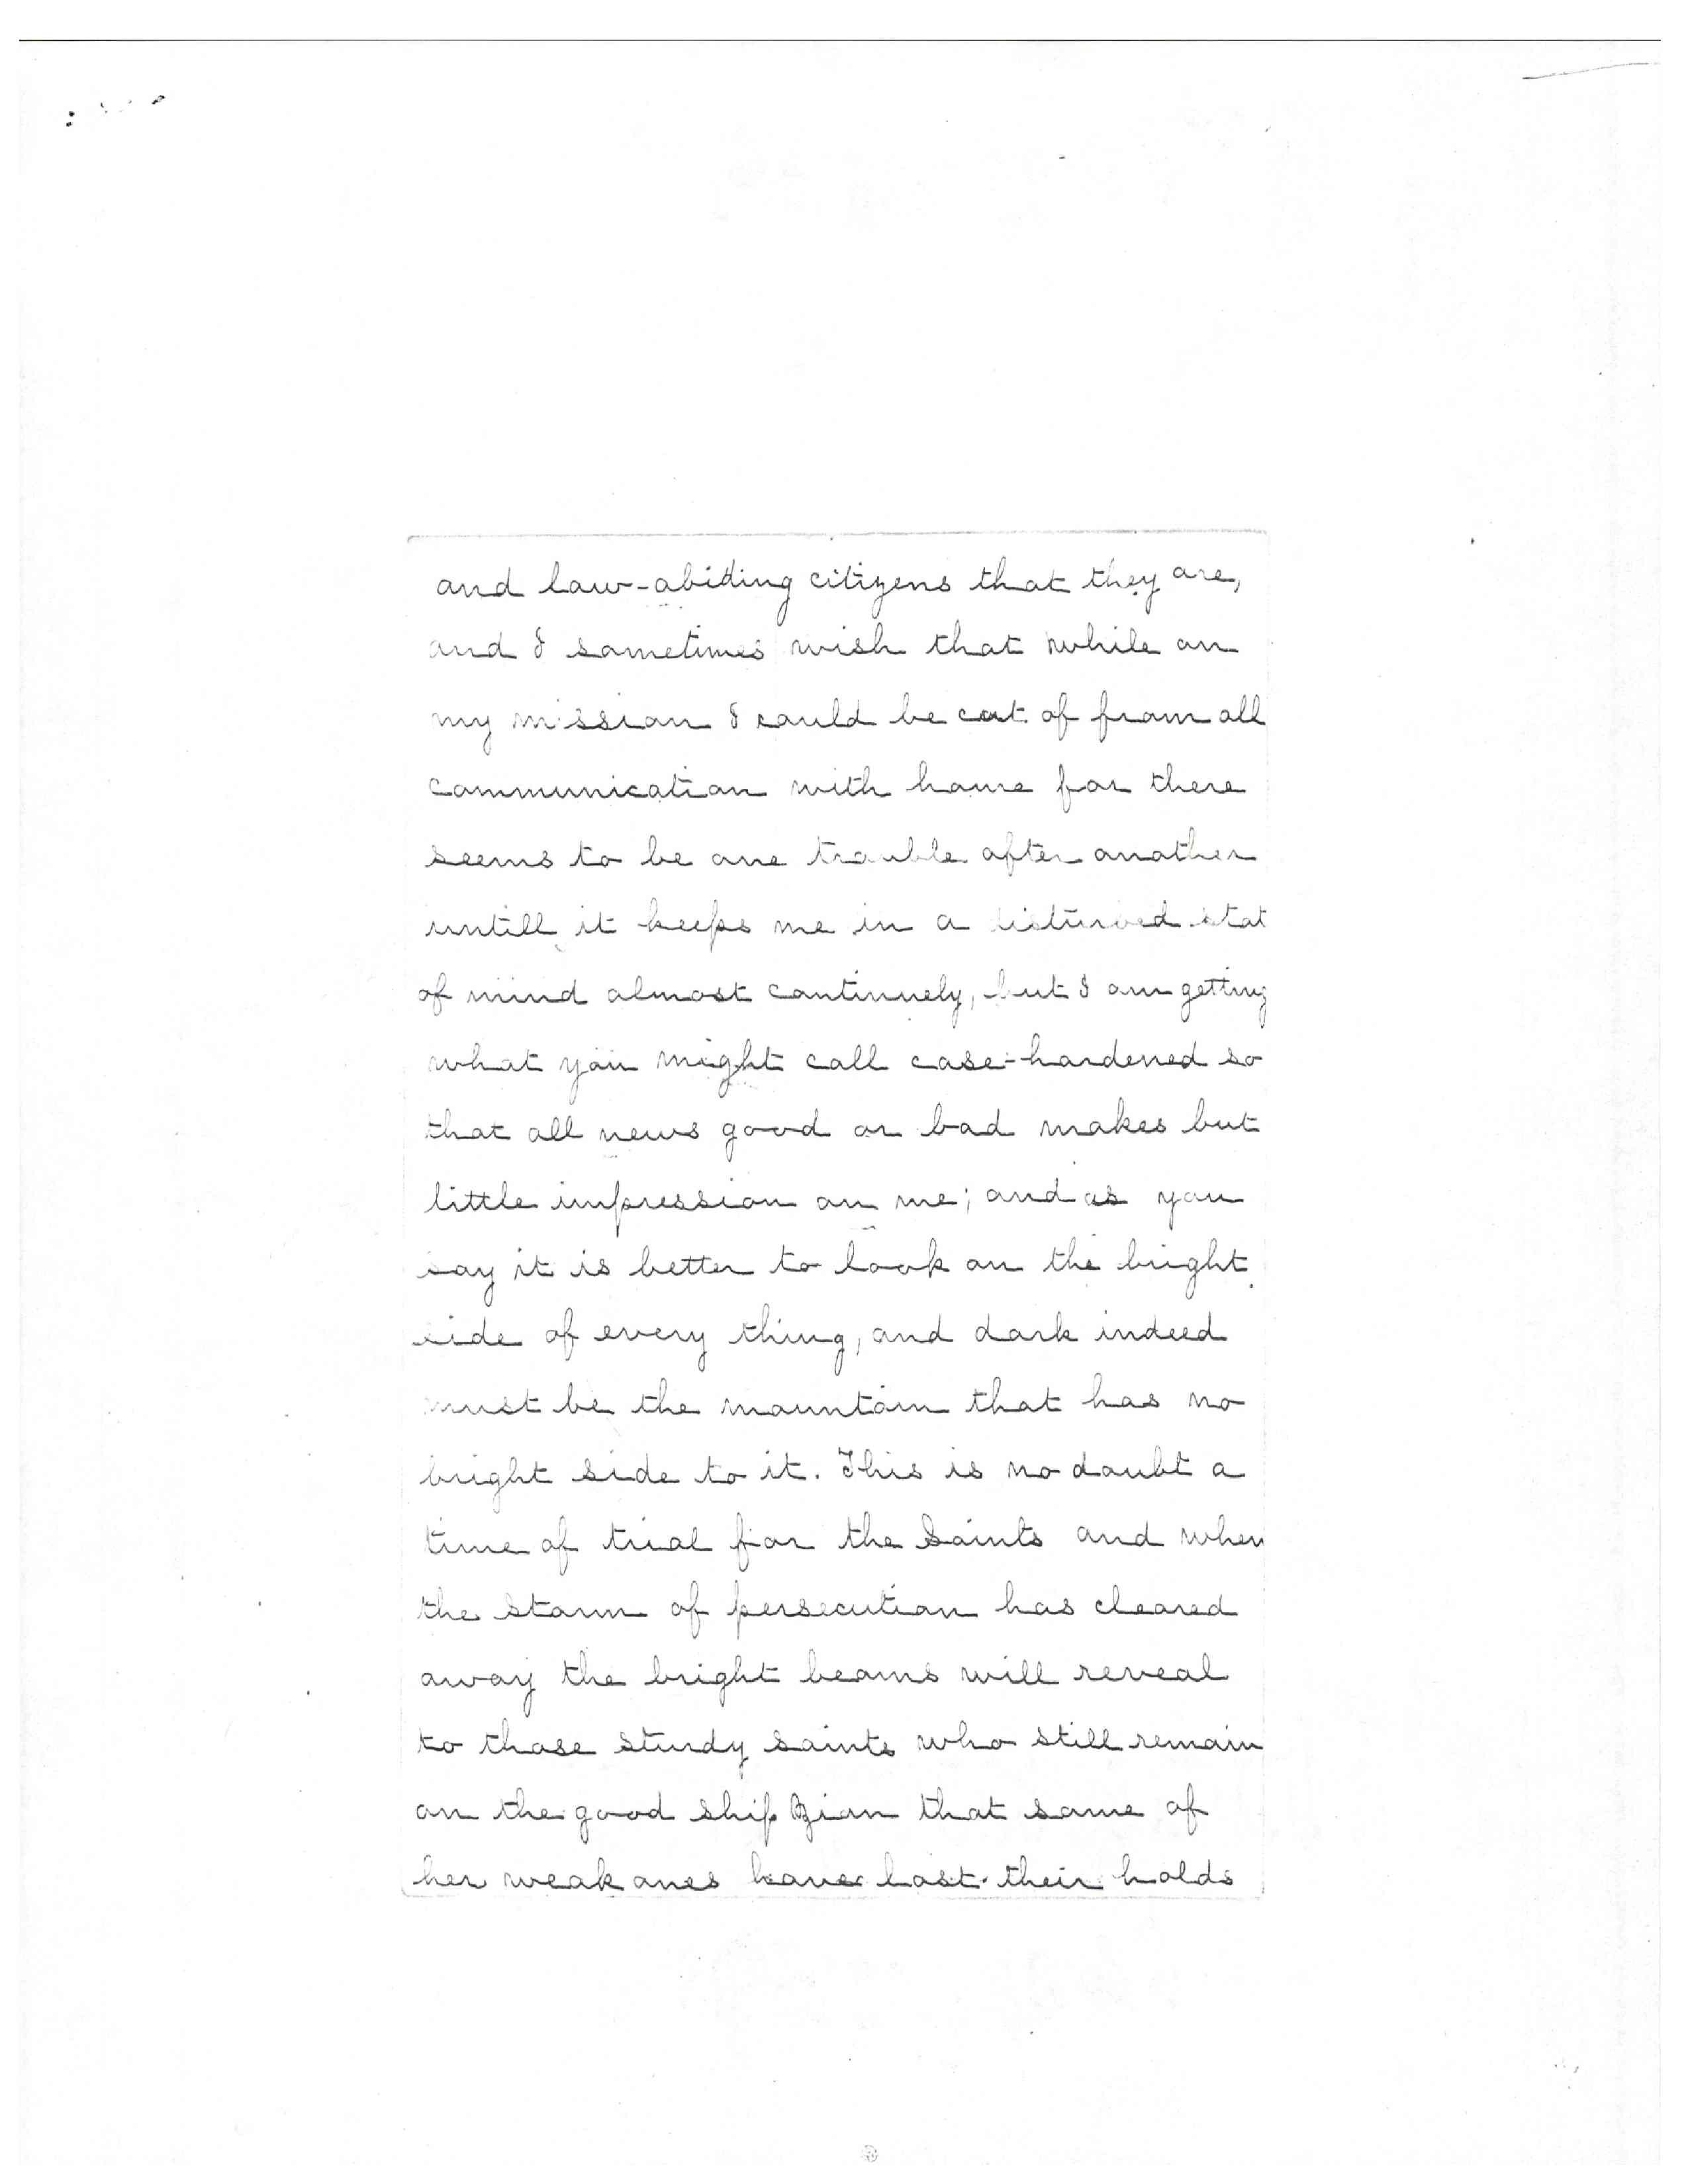 and law-abiding citizens that they are,
and I sometimes wish that while on
my mission I could be cut of from all
communication with home for there
seems to be one trouble after another
untill it keeps me in a disturbed stat
of mind almost continuely, but I am getting
what you might call case-hardened so
that all news good or bad makes but
little impression on me; and as you
say it is better to look on the bright
side of every thing, and dark indeed
must be the mountain that has no
bright side to it. This is no doubt a
time of trial for the Saints and when
the storm of persecution has cleared
away the bright beams will reveal
to those sturdy saints who still remain
on the good ship Zion that some of
her weak ones have lost their holds